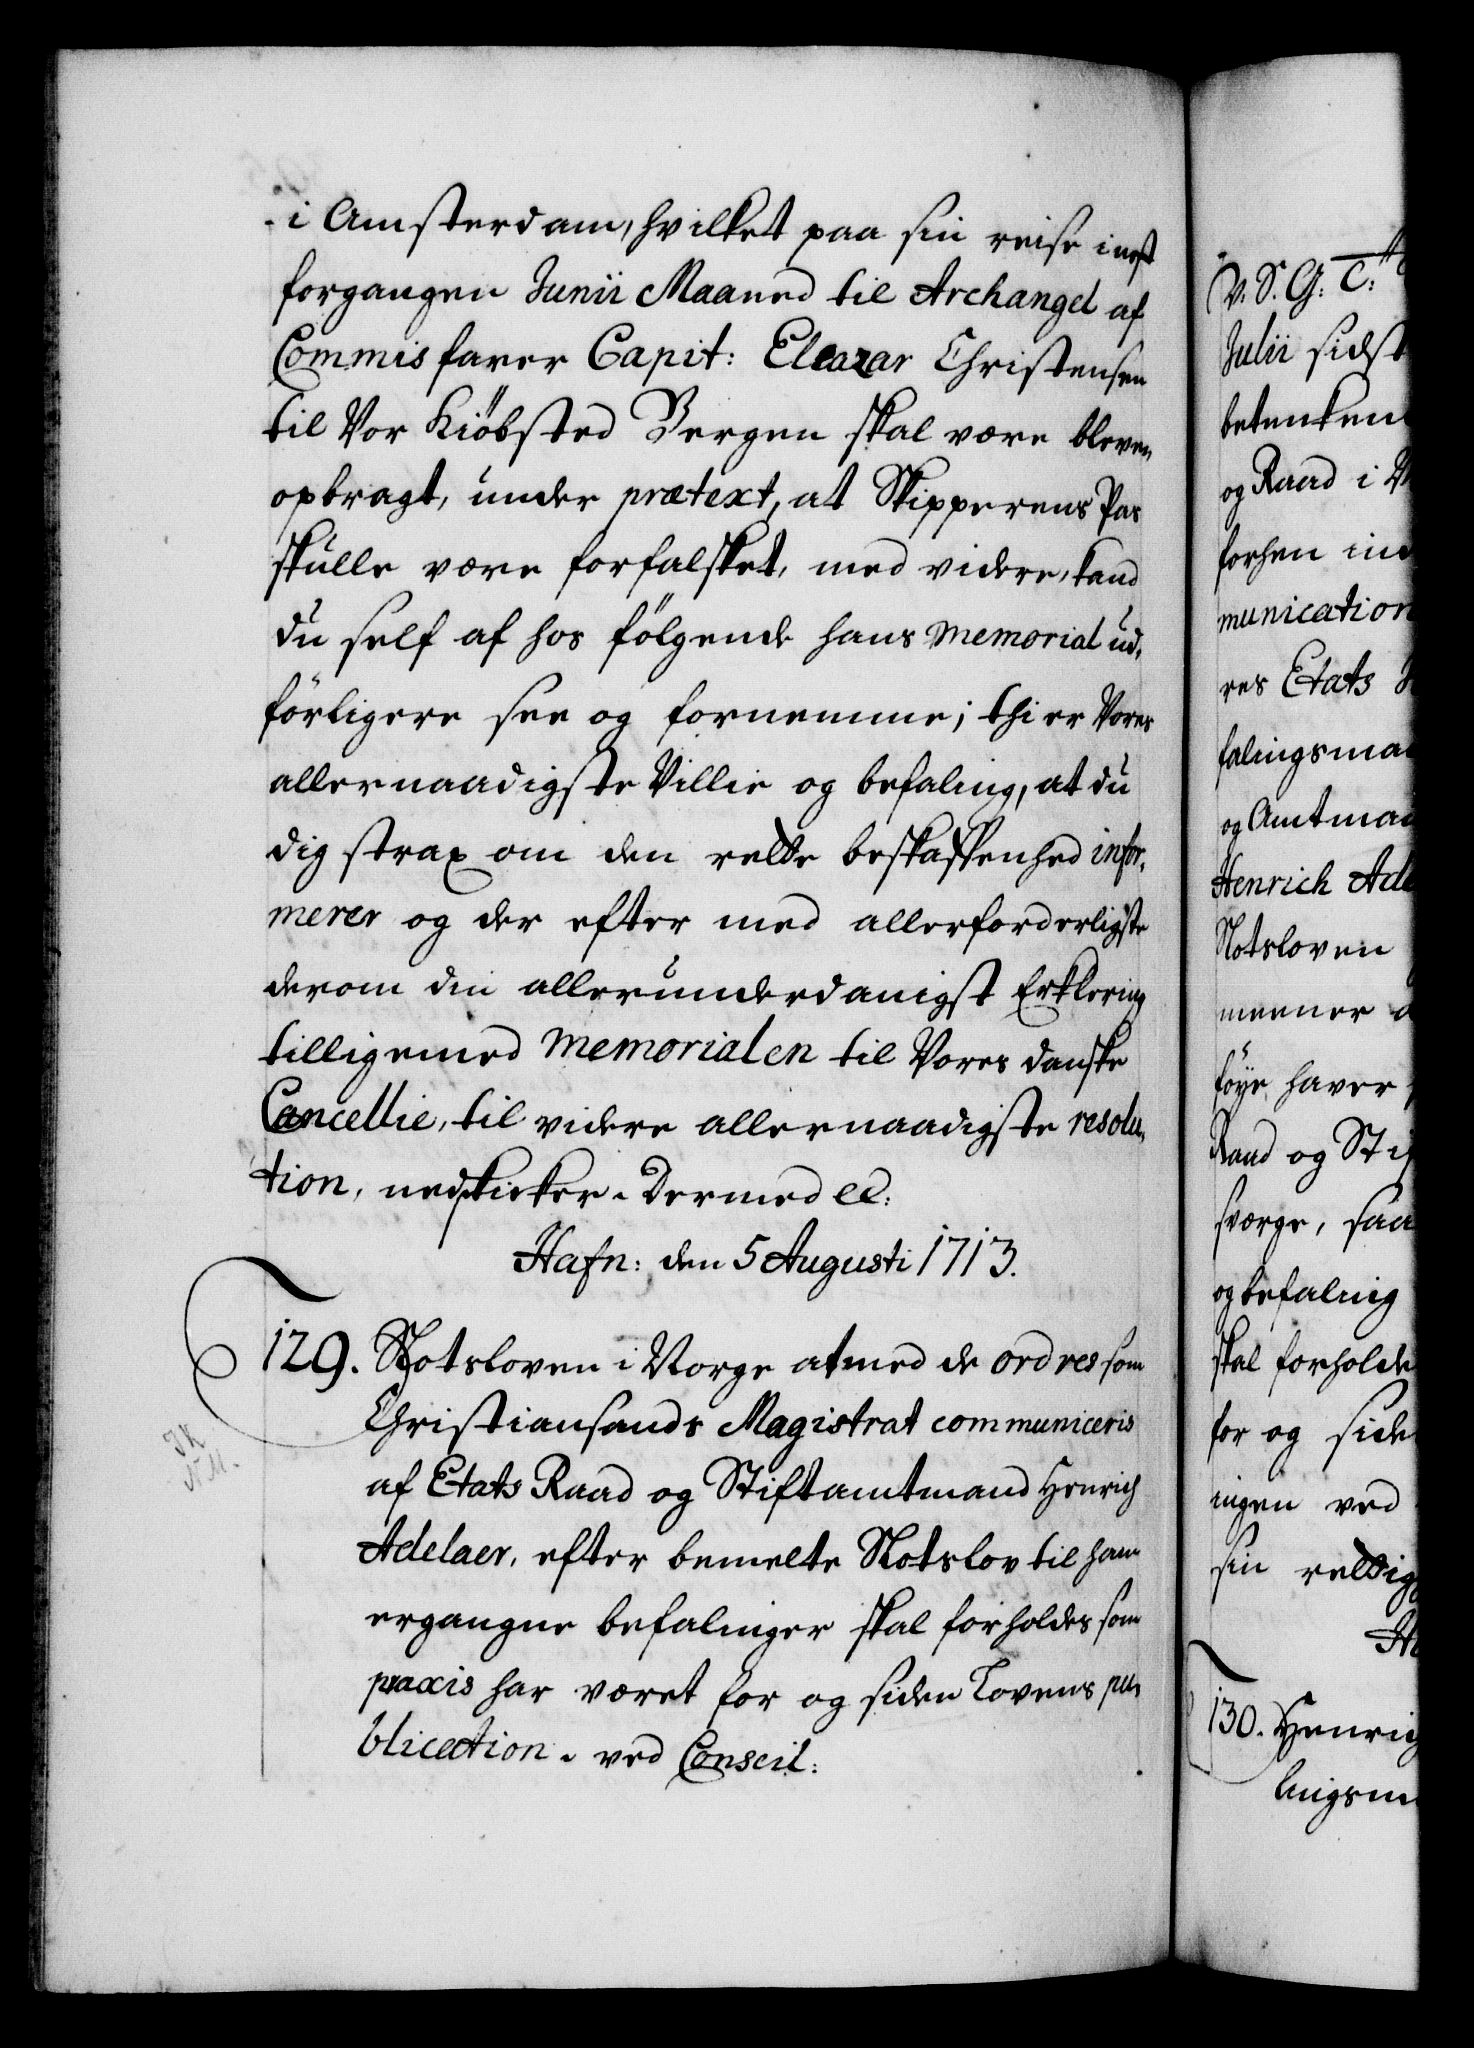 i Amsterdam, hvilket paa sin reise i nest
forgangen Junii Maaned til Archangel af
Commisfarer Capit: Eleazar Christensen
til Vor Kiöbsted Bergen skal være bleven
opbragt, under prætext, at Skipperens Pas
skulle være forfalsket, med videre, kand
du self af hos fölgende hans Memorial ud,
förligere see og fornemme; thi er Vores
allernaadigste Villie og befaling, at du
dig strax om den rette beskaffenhed infor,
merer og der efter med allerforderligste
derom din allerunderdanigst Erklering
tilligemed Memorialen til Vores danske
Cancellie, til videre allernaadigste resolu,
tion, nedskicker. Dermed ec:
Hafn: den 5 Augusti 1713.
129. Slotsloven i Norge at med de ordres som
Christiansands Magistrat communiceris
af Etats Raad og Stiftamtmand Henrich
Adelaer, efter bemelte Slotslov til ham
ergangne befalinger skal forholdes som
praxis har været for og siden Lovens pu,
blication. ved Conseil:
JK
N.M.
V. S. G. T:
Julii sidst
betenken
og Raad i N
forhen in
munication
res Etats
falingsma
og Amtma
Henrich Ade
Slotsloven
meener
föye haver
Raad og Stif
sværge, saa
og befaling
skal forholde
for og side
ingen ved
sin rettig
Ha
130. Henrich
lingsm